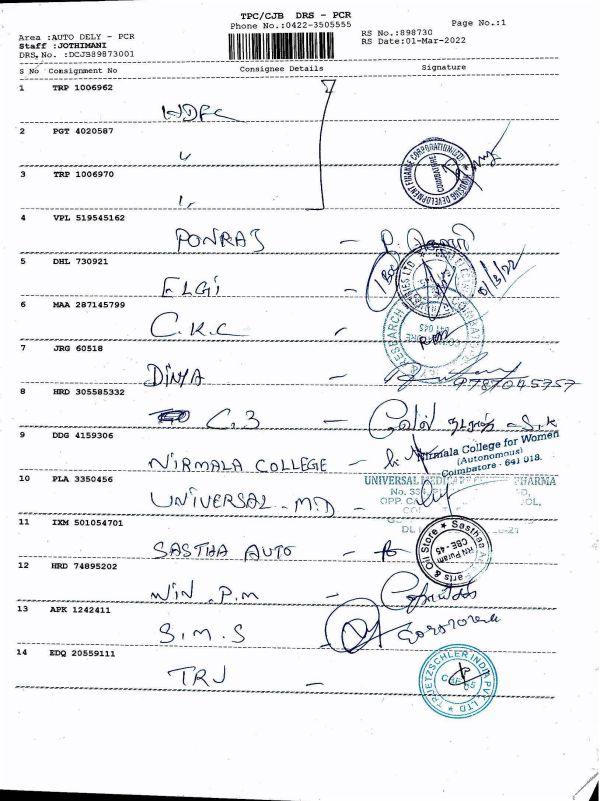 TPC/CJB DRS - PCR
Phone No.:0422-3505555
Page No.:1
RS No.:898730
RS Date:01-Mar-2022
Area :AUTO DELY - PCR
Staff :JOTHIMANI
DRS, No. :DCJB89873001
S No Consignment No Consignee Details Signature
1 TRP 1006962
HDFC
2 PGT 4020587
"
3 TRP 1006970
"
HOUSING DEVELOPMENT FINANCE CORPORATION LTD
COIMBATORE
4 VPL 519545162
PONRAJ -
5 DHL 730921
ELGI -
1/3/22
6 MAA 287145799
C.K.C -
7 JRG 60518
DINYA -
9787045757
8 HRD 305585332
C.3 -
9 DDG 4159306
NIRMALA COLLEGE -
Nirmala College for Women
(Autonomous)
Coimbatore - 641 018.
10 PLA 3350456
UNIVERSAL M.D -
UNIVERSAL PHARMA
11 IXM 501054701
SASTHA AUTO -
Sasthaa
& Oil Store
RN Puram
CBE - 45
12 HRD 74895202
WIN P.M -
13 APK 1242411
S.M.S
14 EDQ 20559111
TRJ -
TRUETZSCHLER INDIA PVT. LTD